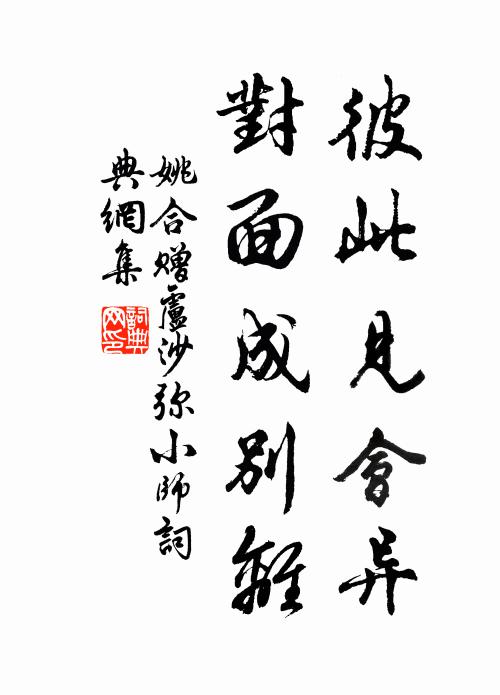 彼此見會异
對面成別離
姚合贈盧沙弥小師詞
典網集
詞典网印